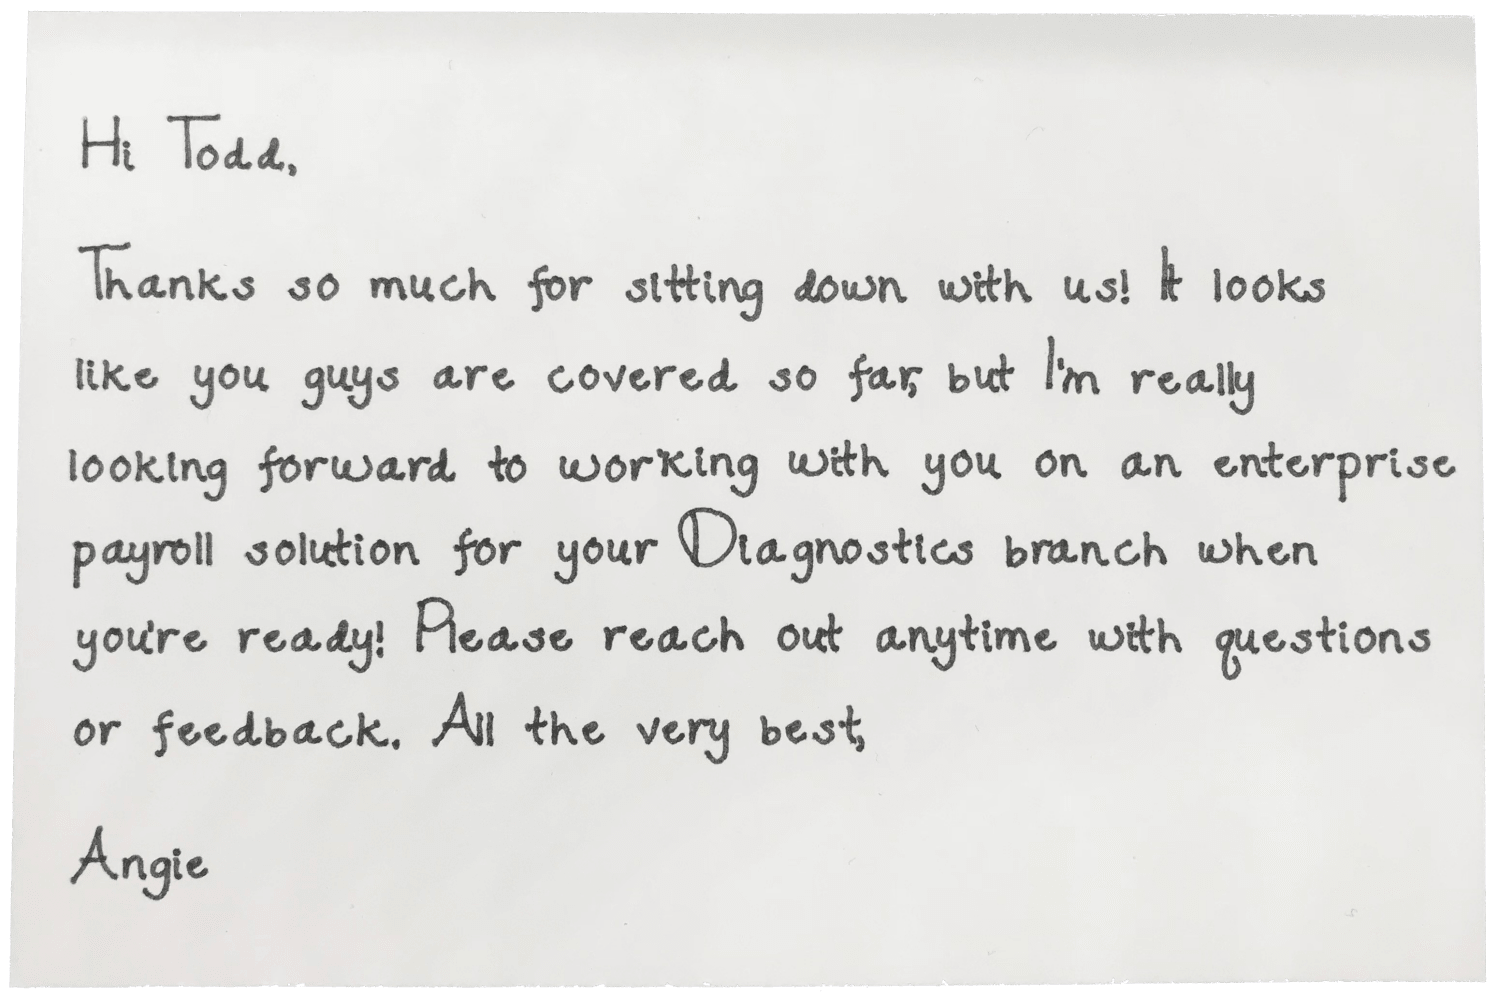 Hi Todd,
Thanks so much for sitting down with us! It looks
like you guys are covered so far, but I'm really
looking forward to working with you on an enterprise
payroll solution for your Diagnostics branch when
you're ready! Please reach out anytime with questions
or feedback. All the very best,
Angie